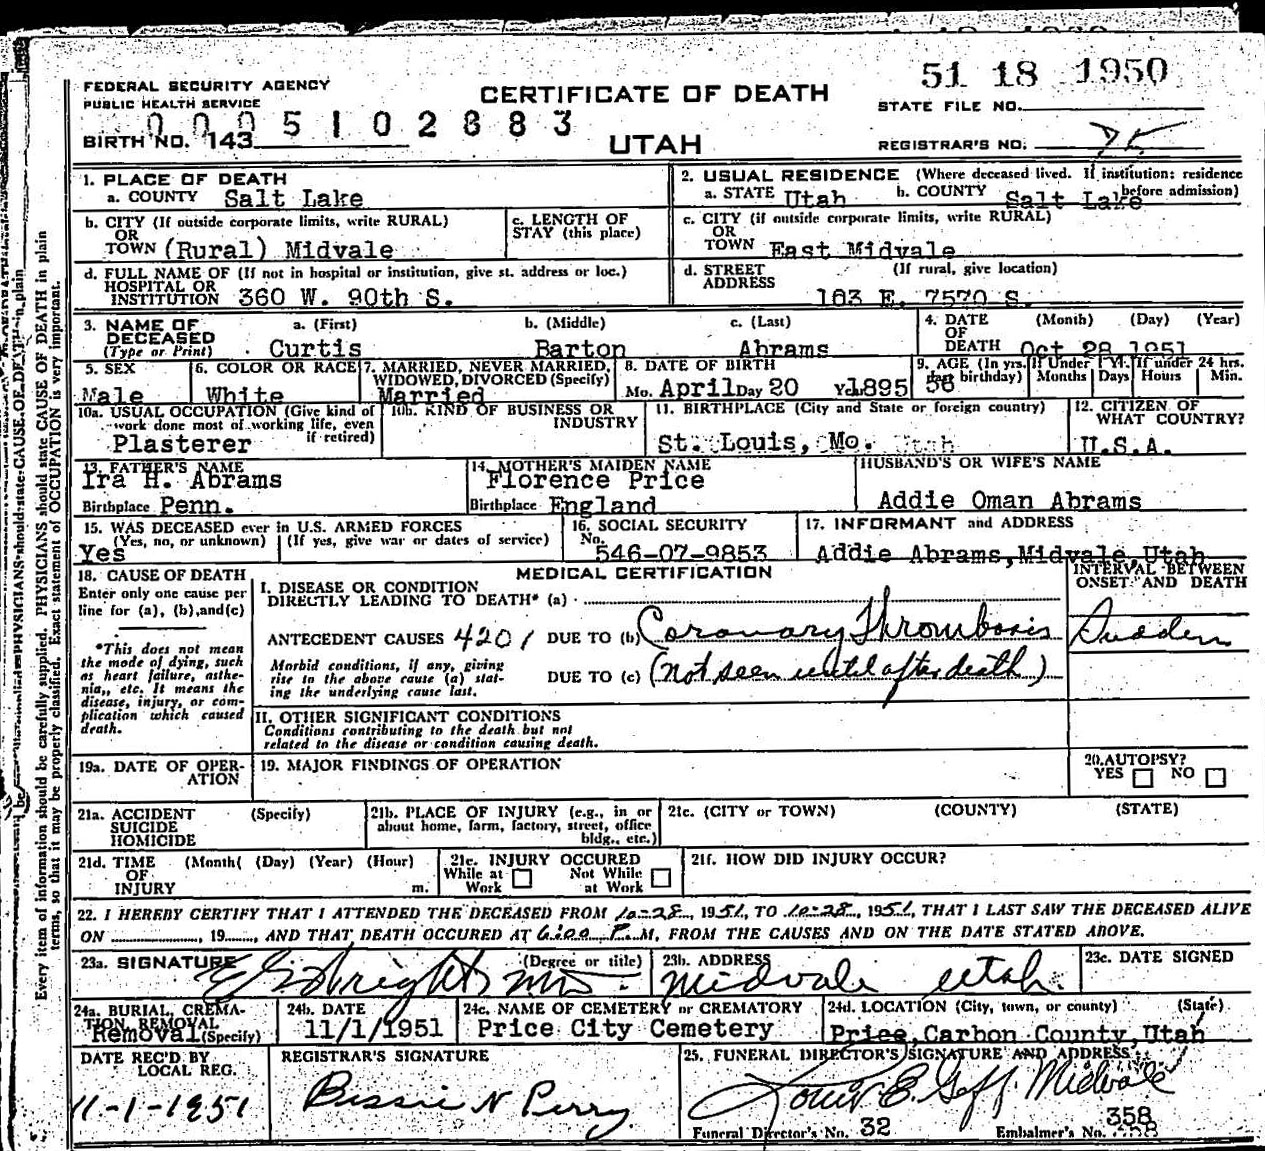 51 18 1950
FEDERAL SECURITY AGENCY
PUBLIC HEALTH SERVICE
CERTIFICATE OF DEATH
STATE FILE NO.
0005102883
BIRTH NO. 143
UTAH
REGISTRAR'S NO.
1. PLACE OF DEATH
a. COUNTY Salt Lake
2. USUAL RESIDENCE (Where deceased lived. If institution: residence before admission)
a. STATE Utah b. COUNTY Salt Lake
b. CITY (If outside corporate limits, write RURAL)
OR
TOWN (Rural) Midvale
c. LENGTH OF
STAY (this place)
c. CITY (if outside corporate limits, write RURAL)
OR
TOWN East Midvale
d. FULL NAME OF (If not in hospital or institution, give st. address or loc.)
HOSPITAL OR
INSTITUTION 360 W. 90th S.
d. STREET (If rural, give location)
ADDRESS
163 E. 7570 S.
3. NAME OF a. (First) b. (Middle) c. (Last)
DECEASED
(Type or Print) Curtis Barton Abrams
4. DATE (Month) (Day) (Year)
OF
DEATH Oct 28 1951
5. SEX
Male
6. COLOR OR RACE
White
7. MARRIED, NEVER MARRIED,
WIDOWED, DIVORCED (Specify)
Married
8. DATE OF BIRTH
Mo. April Day 20 Yr. 1895
9. AGE (In yrs. If Under 1 Yr. If under 24 hrs.
56 birthday) Months Days Hours Min.
10a. USUAL OCCUPATION (Give kind of
work done most of working life, even
if retired)
Plasterer
10b. KIND OF BUSINESS OR
INDUSTRY
11. BIRTHPLACE (City and State or foreign country)
St. Louis, Mo. Utah
12. CITIZEN OF
WHAT COUNTRY?
U.S.A.
13. FATHER'S NAME
Ira H. Abrams
Birthplace Penn.
14. MOTHER'S MAIDEN NAME
Florence Price
Birthplace England
HUSBAND'S OR WIFE'S NAME
Addie Oman Abrams
15. WAS DECEASED ever in U.S. ARMED FORCES
(Yes, no, or unknown) (If yes, give war or dates of service)
Yes
16. SOCIAL SECURITY
No.
546-07-9853
17. INFORMANT and ADDRESS
Addie Abrams, Midvale, Utah
18. CAUSE OF DEATH
Enter only one cause per
line for (a), (b), and (c)
*This does not mean
the mode of dying, such
as heart failure, asthe-
nia,, etc. It means the
disease, injury, or com-
plication which caused
death.
MEDICAL CERTIFICATION
INTERVAL BETWEEN
ONSET AND DEATH
I. DISEASE OR CONDITION
DIRECTLY LEADING TO DEATH* (a)
ANTECEDENT CAUSES 4201 DUE TO (b) Coronary Thrombosis Sudden
Morbid conditions, if any, giving
rise to the above cause (a) stat-
ing the underlying cause last.
DUE TO (c) (not seen until after death)
II. OTHER SIGNIFICANT CONDITIONS
Conditions contributing to the death but not
related to the disease or condition causing death.
19a. DATE OF OPER-
ATION
19. MAJOR FINDINGS OF OPERATION
20. AUTOPSY?
YES NO
21a. ACCIDENT (Specify)
SUICIDE
HOMICIDE
21b. PLACE OF INJURY (e.g., in or
about home, farm, factory, street, office
bldg., etc.)
21c. (CITY or TOWN) (COUNTY) (STATE)
21d. TIME (Month( (Day) (Year) (Hour)
OF
INJURY m.
21e. INJURY OCCURED
While at Not While
Work at Work
21f. HOW DID INJURY OCCUR?
22. I HEREBY CERTIFY THAT I ATTENDED THE DECEASED FROM 10-28, 1951, TO 10-28, 1951, THAT I LAST SAW THE DECEASED ALIVE
ON , 19 , AND THAT DEATH OCCURED AT 6:00 P.M, FROM THE CAUSES AND ON THE DATE STATED ABOVE.
23a. SIGNATURE (Degree or title)
MD
23b. ADDRESS
Midvale Utah
23c. DATE SIGNED
24a. BURIAL, CREMA-
TION, REMOVAL
Removal (Specify)
24b. DATE
11/1/1951
24c. NAME OF CEMETERY or CREMATORY
Price City Cemetery
24d. LOCATION (City, town, or county) (State)
Price, Carbon County, Utah
DATE REC'D BY
LOCAL REG.
11-1-1951
REGISTRAR'S SIGNATURE
Bessie N Perry
25. FUNERAL DIRECTOR'S SIGNATURE AND ADDRESS
Louis E. Goff Midvale
358
Funeral Director's No. 32 Embalmer's No.
Every item of information should be carefully supplied. PHYSICIANS should state CAUSE OF DEATH in plain
terms, so that it may be properly classified. Exact statement of OCCUPATION is very important.